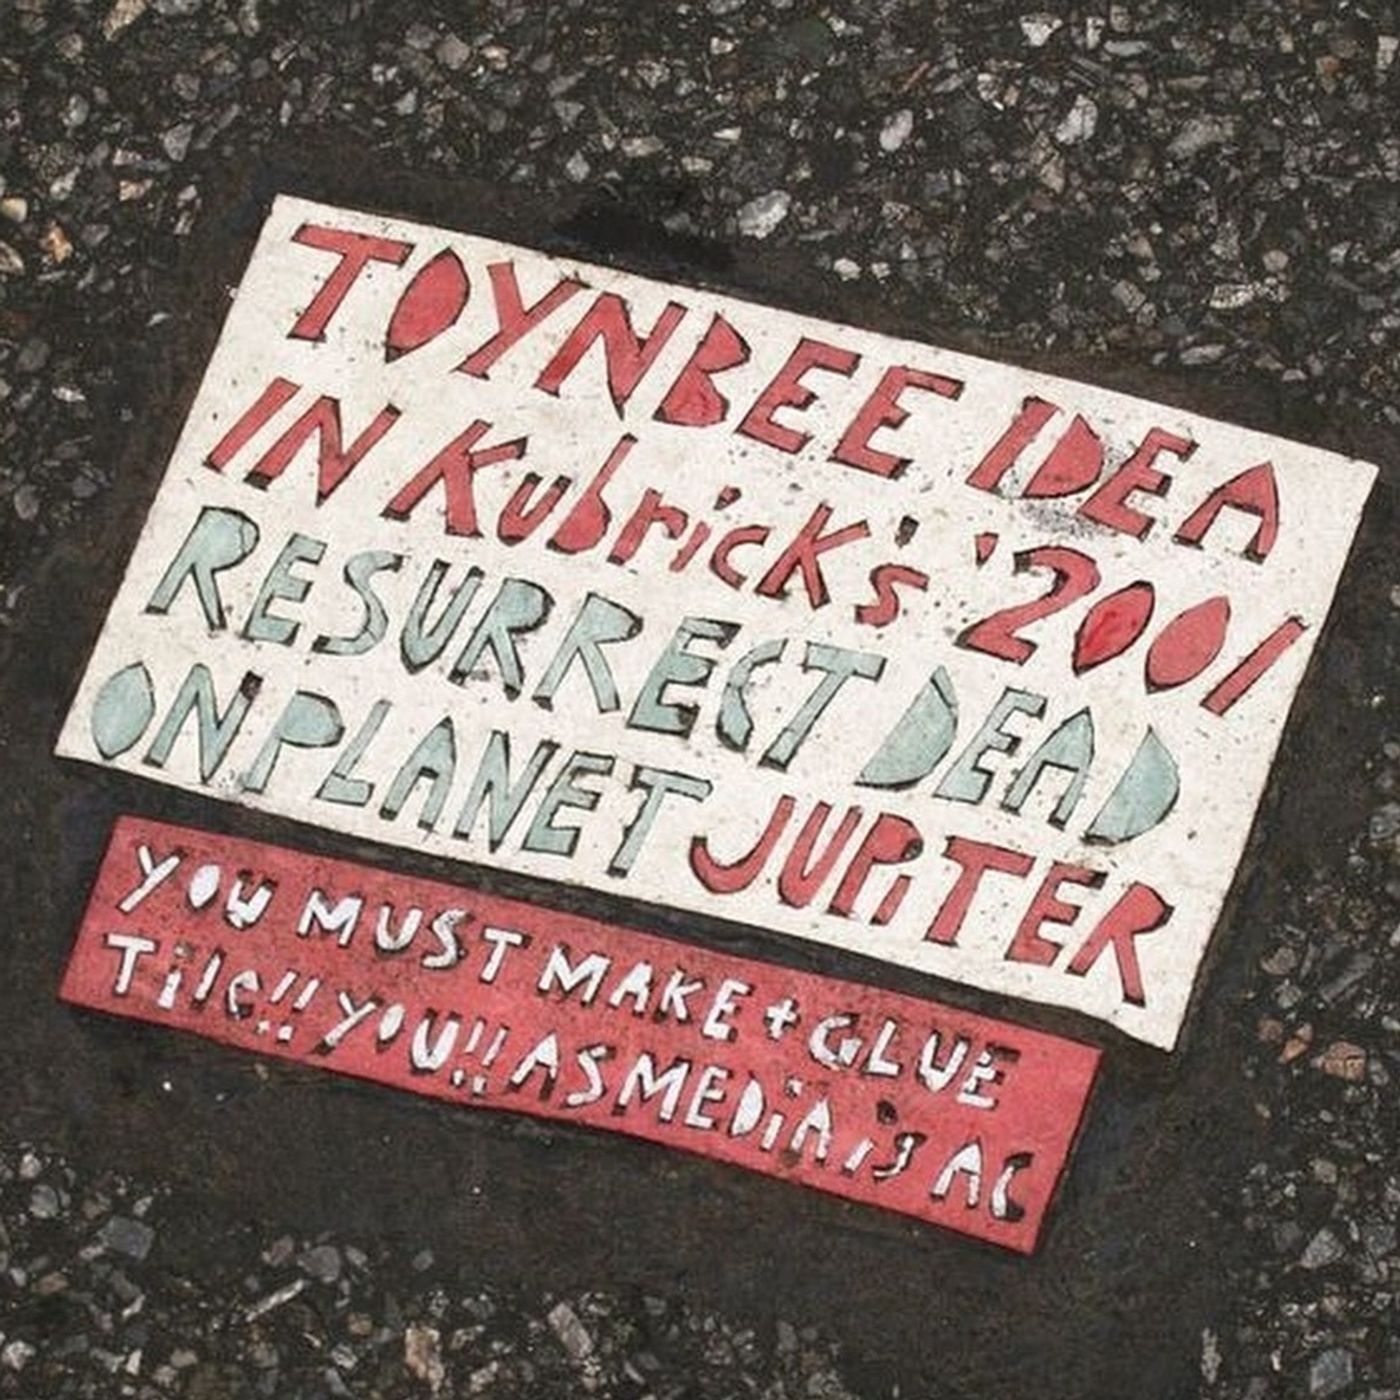 TOYNBEE IDEA
IN KubricK's '2001
RESURRECT DEAD
ON PLANET JUPiTER
YOU MUST MAKE + GLUE
Tile!! YOU!! AS MEDiA is AC